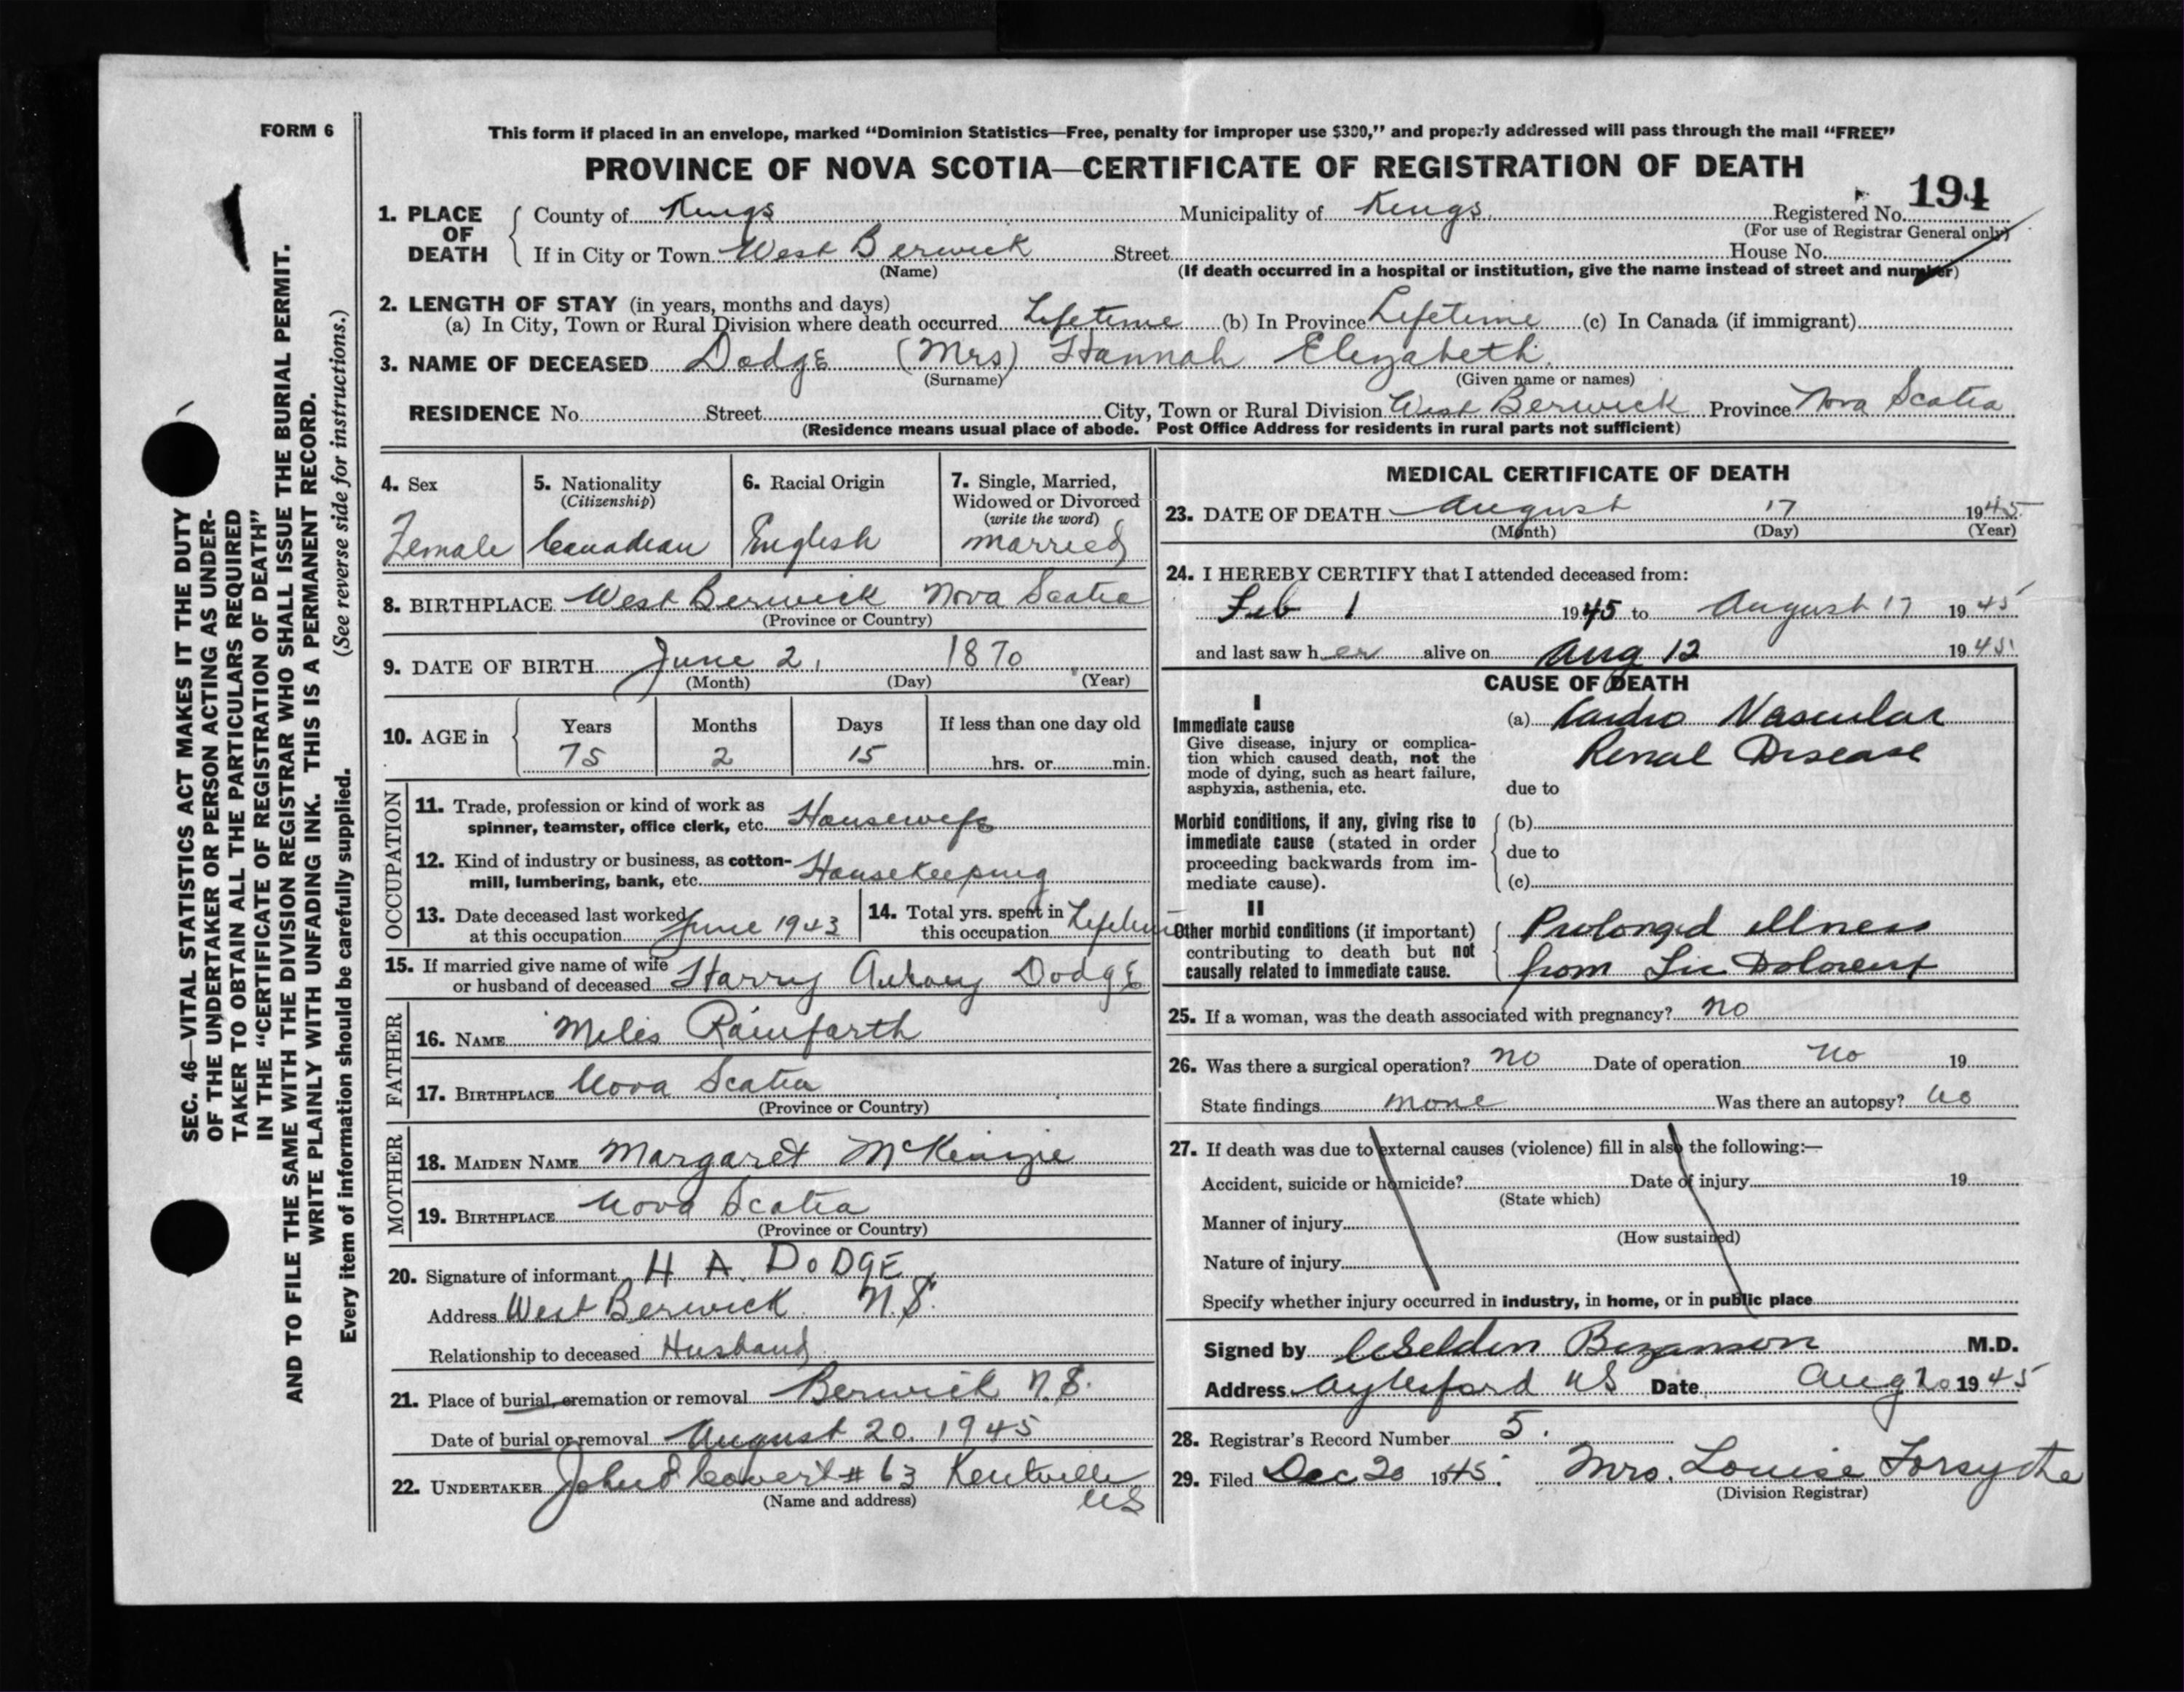 FORM 6
This form if placed in an envelope, marked “Dominion Statistics—Free, penalty for improper use $300,” and properly addressed will pass through the mail “FREE”
PROVINCE OF NOVA SCOTIA—CERTIFICATE OF REGISTRATION OF DEATH
194
1. PLACE OF DEATH County of Kings Municipality of Kings Registered No.
(For use of Registrar General only)
If in City or Town West Berwick Street House No.
(Name) (If death occurred in a hospital or institution, give the name instead of street and number)
2. LENGTH OF STAY (in years, months and days)
(a) In City, Town or Rural Division where death occurred Lifetime (b) In Province Lifetime (c) In Canada (if immigrant)
3. NAME OF DECEASED Dodge (Mrs) Hannah Elizabeth.
(Surname) (Given name or names)
RESIDENCE No. Street City, Town or Rural Division West Berwick Province Nova Scotia
(Residence means usual place of abode. Post Office Address for residents in rural parts not sufficient)
4. Sex 5. Nationality (Citizenship) 6. Racial Origin 7. Single, Married, Widowed or Divorced (write the word)
Female Canadian English Married
8. BIRTHPLACE West Berwick Nova Scotia
(Province or Country)
9. DATE OF BIRTH June 2, 1870
(Month) (Day) (Year)
10. AGE in Years Months Days If less than one day old
75 2 15 hrs. or min.
OCCUPATION
11. Trade, profession or kind of work as
spinner, teamster, office clerk, etc. Housewife
12. Kind of industry or business, as cotton-
mill, lumbering, bank, etc. Housekeeping
13. Date deceased last worked
at this occupation June 1943
14. Total yrs. spent in
this occupation Lifetime
15. If married give name of wife
or husband of deceased Harry Dodge
FATHER
16. NAME Miles Rainforth
17. BIRTHPLACE Nova Scotia
(Province or Country)
MOTHER
18. MAIDEN NAME Margaret McKenzie
19. BIRTHPLACE Nova Scotia
(Province or Country)
20. Signature of informant H A. DODGE
Address West Berwick N.S.
Relationship to deceased Husband
21. Place of burial, cremation or removal Berwick N.S.
Date of burial or removal August 20. 1945
22. UNDERTAKER Covert # 63 Kentville
NS
(Name and address)
MEDICAL CERTIFICATE OF DEATH
23. DATE OF DEATH August 17 1945
(Month) (Day) (Year)
24. I HEREBY CERTIFY that I attended deceased from:
Feb 1 1945 to August 17 1945
and last saw her alive on Aug 12 1945
CAUSE OF DEATH
I
Immediate cause
Give disease, injury or complica-
tion which caused death, not the
mode of dying, such as heart failure,
asphyxia, asthenia, etc.
(a) Cardio Vascular
Renal Disease
due to
Morbid conditions, if any, giving rise to
immediate cause (stated in order
proceeding backwards from im-
mediate cause).
(b)
due to
(c)
II
Other morbid conditions (if important)
contributing to death but not
causally related to immediate cause.
Prolonged illness
from
25. If a woman, was the death associated with pregnancy? No
26. Was there a surgical operation? No Date of operation No 19
State findings none Was there an autopsy? No
27. If death was due to external causes (violence) fill in also the following:—
Accident, suicide or homicide? Date of injury 19
(State which)
Manner of injury
(How sustained)
Nature of injury
Specify whether injury occurred in industry, in home, or in public place
Signed by Bezanson M.D.
Address Aylesford NS Date Aug 20 1945
28. Registrar’s Record Number 5.
29. Filed Dec 20 1945. Mrs. Louise Forsythe
(Division Registrar)
SEC. 46—VITAL STATISTICS ACT MAKES IT THE DUTY
OF THE UNDERTAKER OR PERSON ACTING AS UNDER-
TAKER TO OBTAIN ALL THE PARTICULARS REQUIRED
IN THE “CERTIFICATE OF REGISTRATION OF DEATH”
AND TO FILE THE SAME WITH THE DIVISION REGISTRAR WHO SHALL ISSUE THE BURIAL PERMIT.
WRITE PLAINLY WITH UNFADING INK. THIS IS A PERMANENT RECORD.
Every item of information should be carefully supplied. (See reverse side for instructions.)